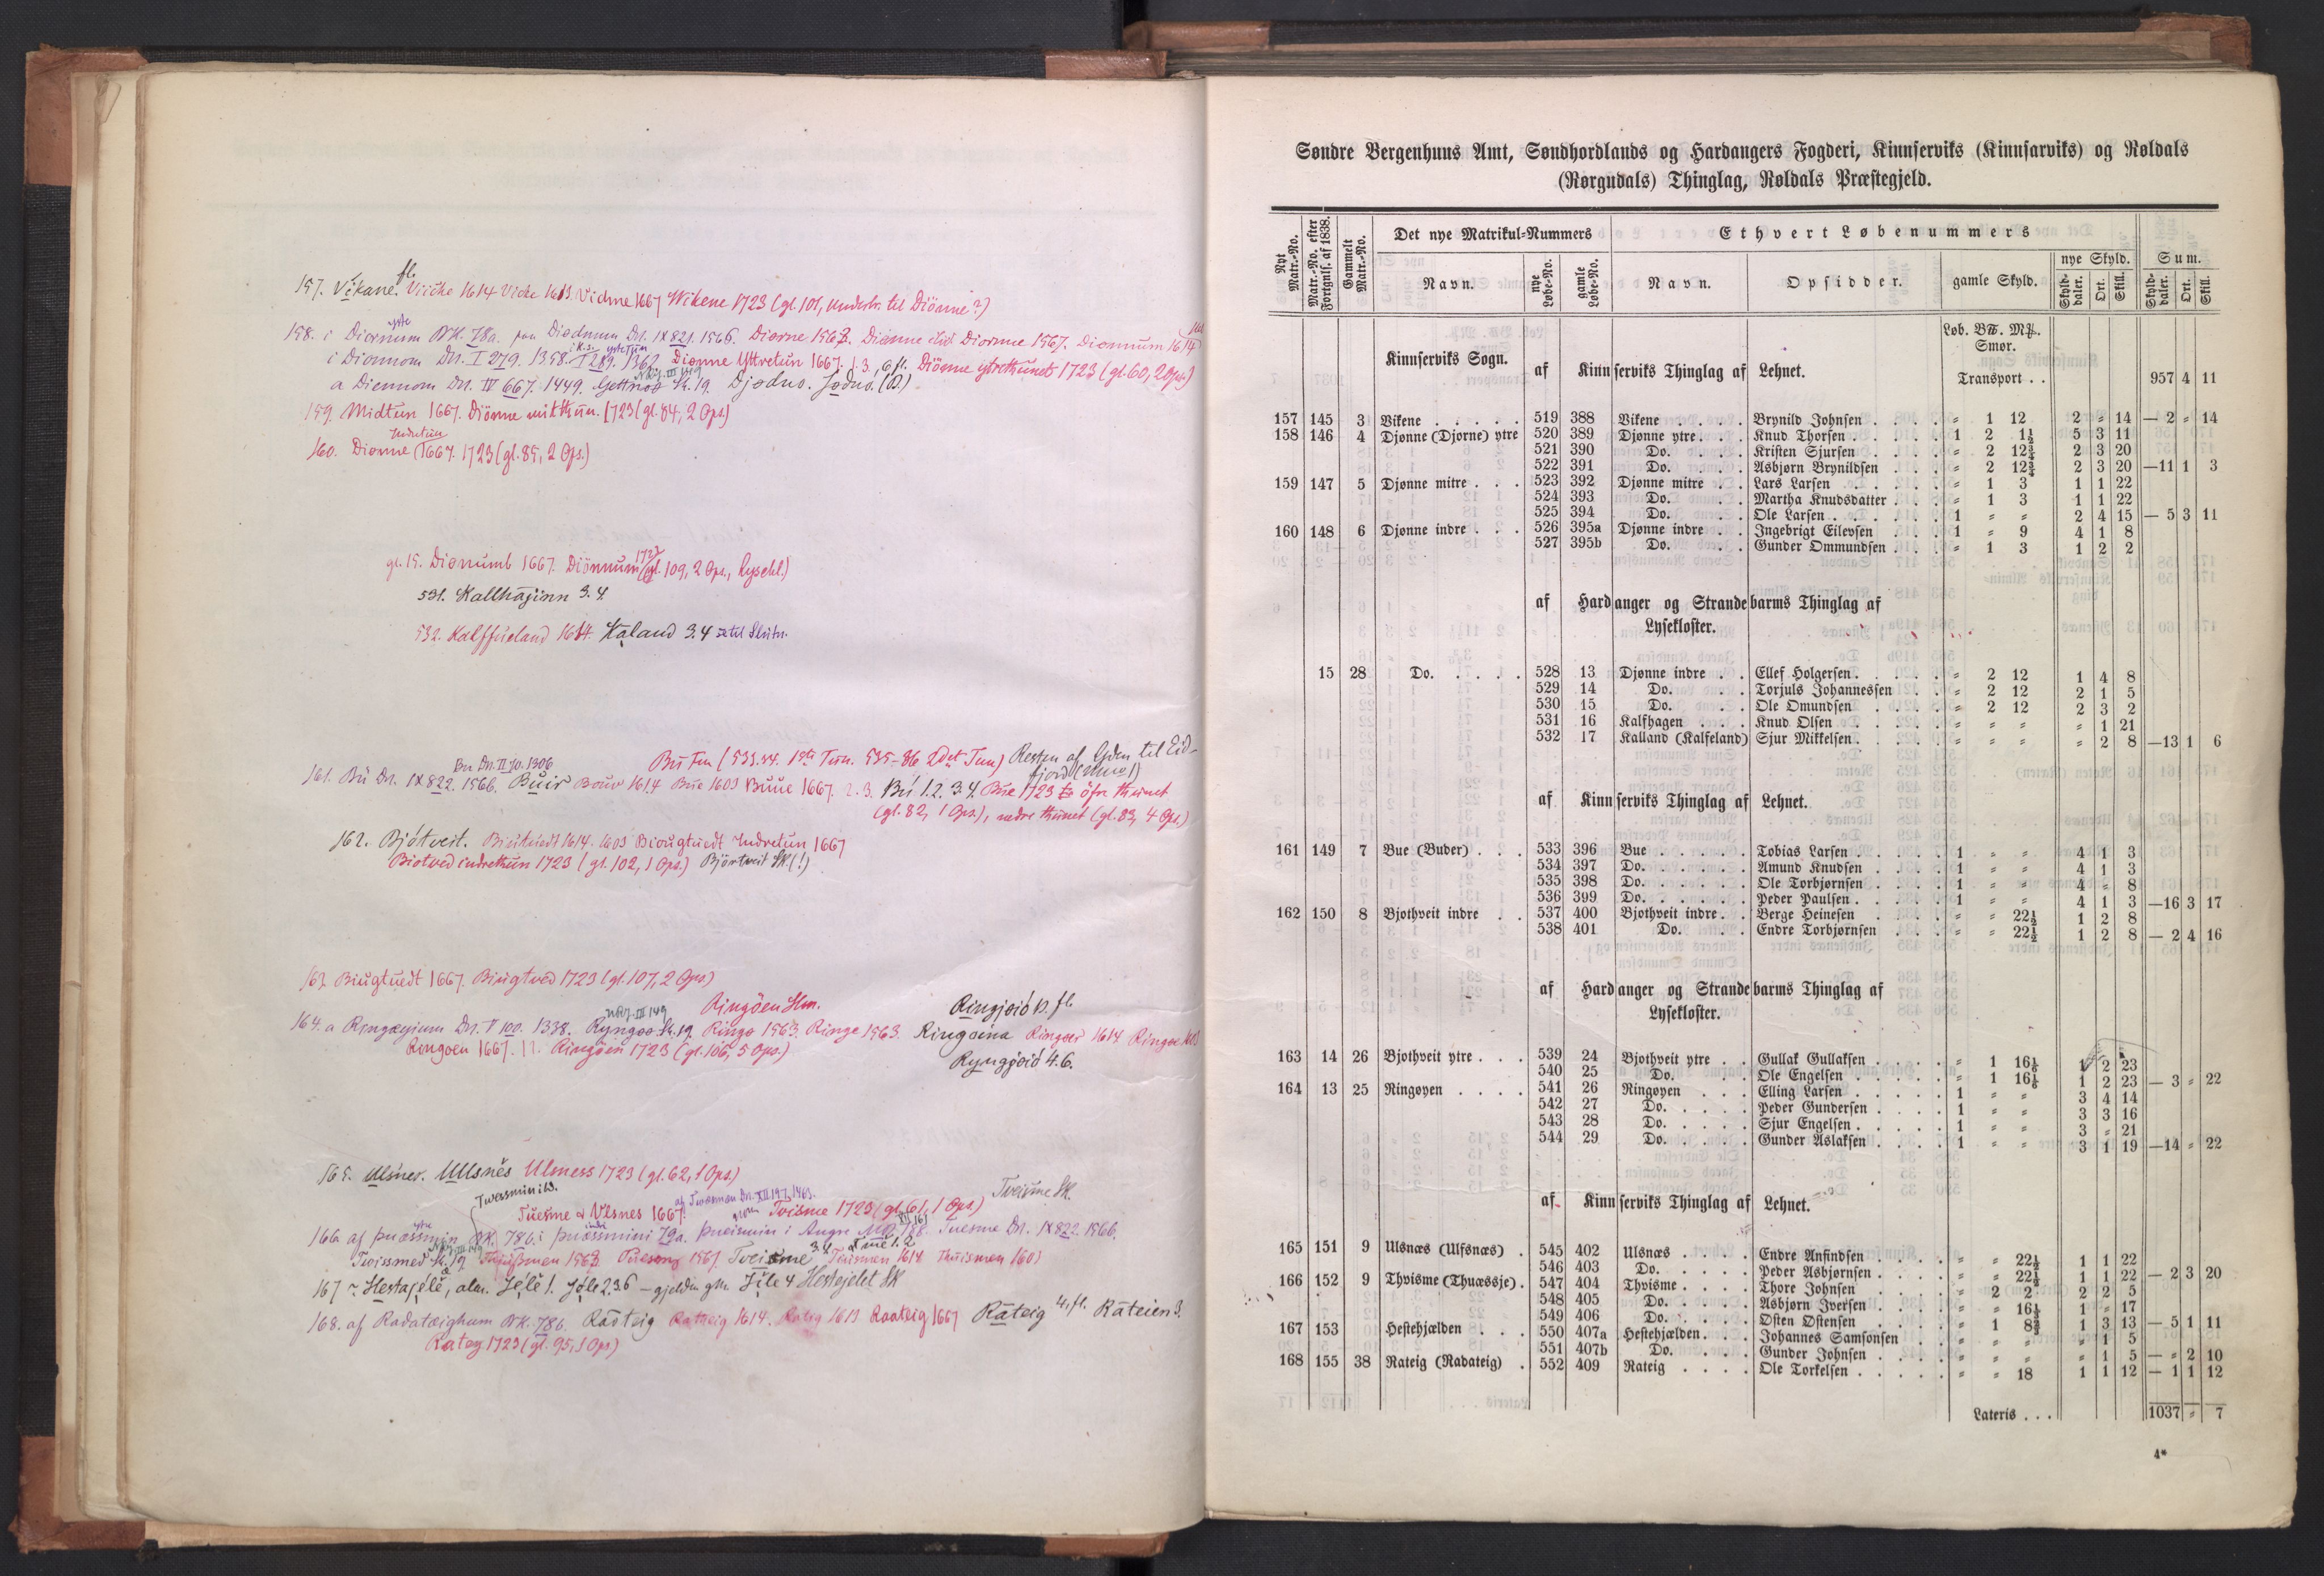 157. Vikane fl. Viiche 1614 Viche 1613. Vichne 1667 Wikene 1723 (gl. 101, understr. til Diönne?)
158. i Diornum ytre BK. 78a. paa Diødnum Dn. IX 821. 1566. Diorne 1563. Dionne Diorme 1567. Dionnum 1614
i Dionnom Dn. I 279. 1358. I 289. 1362. Dionne Yttretun 1667. 1.3, 6 fl. Diönne ytrethunet 1723 (gl. 60, 2 Ops.)
a Diennom Dn. IV 667. 1449. NRJ. III 149 Sk. 19. Djødno. Jodno. (Q)
159. Midtun 1667. Diönne mitthun. 1723 (gl. 84, 2 Ops.)
160. Dionne Indretun 1667. 1723 (gl. 85, 2 Ops.)
gl. 15. Dionnumb 1667. Diönnum 1723 (gl. 109, 2 Ops., Lysekl.)
531. Kallhaginn 3. 4.
532. Kalffueland 1614. Kaland 3. 4 se til Slutn.
Bu Fm (533.34. 1ste Tun. 535-36 2det Tun) Resten af Gden til Eid-
fjord
Bu Dn. II 70. 1306
161. Bu Dn. IX 822. 1566. Buir Bouer 1614 Bue 1603 Buue 1667. 2. 3. Bú 1. 2. 3. 4. Bue 1723 öfre thunet
(gl. 82, 1 Ops.), nedre thunet (gl. 83, 4 Ops.)
162. Bjótveit. Biutuedt 1614. 1603 Biougtuedt Indretun 1667
Biotved indrethun 1723 (gl. 102, 1 Ops.) Bjórtveit SK. (!)
163. Biugtuedt 1667. Biugtved 1723 (gl. 107, 2 Ops.)
Ringöen Slm. Ringjoió p. fl.
164. a Ringæyium Dn. V 100. 1338. NRJ. III 149 Ryngøo Sk. 19. Ringo 1563. Ringe 1563. Ringoina Ringoer 1614 Ringoe 1603
Ringøen 1667. 11. Ringöen 1723 (gl. 106, 5 Ops.) Ryngjoió 4. 6.
165. Ulsnes. Ullsnes Ulsness 1723 (gl. 62, 1 Ops.)
Tuesme & Vlsnes 1667. af Tvæsman Dn. XII 197. 1463. Tvisme 1723 (gl. 61, 1 Ops.) Tveisme SK.
166. af þuæssmin ytre BK. 78b. i þuæssmini indre 79a. þueismin i Augne Tuesme Dn. IX 822. 1566.
Tvissmed Sk. 19 1563. 1567. Tveisme 3. 4 Tmē 1. 2 Tuismen 1614 Thuismen 1603
167 ~ Hestajele, alm. Jele 1. Jøle 2 3 6 – gjelden gtn. Jile 4 Hestejelet SK
168. af Radatæighum BK. 78b. Rådteig Ratteig 1614. Rateig 1613 Raateig 1667 Rateig 4. fl. Rateien 3.
Rateg 1723 (gl. 95, 1 Ops)
Søndre Bergenhuus Amt, Søndhordlands og Hardangers Fogderi, Kinnserviks (Kinnsarviks) og Røldals
(Rørgudals) Thinglag, Røldals Præstegjeld.
Nyt Matr.-No. Matr.-No. efter Fortgnls. af 1838. Gammelt Matr.-No. Det nye Matrikul-Nummers Ethvert Løbenummers
nye Skyld. Sum.
Navn. nye Løbe-No. gamle Løbe-No. Navn. Opsidder. gamle Skyld. Skyld-daler. Ort. Skill. Skyld-daler. Ort. Skill.
Løb. B℔. M℔.
Smør.
Kinnserviks Sogn. af Kinnserviks Thinglag af Lehnet.
Transport . . 957 4 11
157 145 3 Vikene . . . . . 519 388 Vikene . . . . Brynild Johnsen . . . . „ 1 12 2 „ 14 — 2 „ 14
158 146 4 Djønne (Djorne) ytre 520 389 Djønne ytre. . . Knud Thorsen . . . . . 1 2 1½ 5 3 11
521 390 Do. . . Kristen Sjursen . . . . „ 2 12¾ 2 3 20
522 391 Do. . . Asbjørn Brynildsen . . . „ 2 12¾ 2 3 20 —11 1 3
159 147 5 Djønne mitre . . . 523 392 Djønne mitre . . Lars Larsen . . . . . „ 1 3 1 1 22
524 393 Do. . . Martha Knudsdatter . . . „ 1 3 1 1 22
525 394 Do. . . Ole Larsen . . . . . . 1 „ „ 2 4 15 — 5 3 11
160 148 6 Djønne indre . . . 526 395a Djønne indre . . Ingebrigt Eilevsen . . . 1 „ 9 4 1 8
527 395b Do. . . Gunder Ommundsen . . . „ 1 3 1 2 2
af Hardanger og Strandebarms Thinglag af
Lysekloster.
15 28 Do. . . . . . 528 13 Djønne indre . . Ellef Holgersen . . . . . „ 2 12 1 4 8
529 14 Do. . . Torjuls Johannessen . . „ 2 12 2 1 5
530 15 Do. . . Ole Omundsen . . . . „ 2 12 2 3 2
531 16 Kalfhagen . . . Knud Olsen . . . . . „ „ „ „ 1 21
532 17 Kalland (Kalfeland) Sjur Mikkelsen . . . . . „ „ „ „ 2 8 —13 1 6
af Kinnserviks Thinglag af Lehnet.
161 149 7 Bue (Buder) . . . 533 396 Bue . . . . . Tobias Larsen . . . . . 1 „ „ 4 1 3
534 397 Do. . . . . . Amund Knudsen . . . . 1 „ „ 4 1 3
535 398 Do. . . . . . Ole Torbjørnsen . . . . 1 „ „ 4 „ 8
536 399 Do. . . . . . Peder Paulsen . . . . . 1 „ „ 4 1 3 —16 3 17
162 150 8 Bjothveit indre . . 537 400 Bjothveit indre . . Berge Heinesen . . . . „ „ 22½ 1 2 8
538 401 Do. . . Endre Torbjørnsen . . . „ „ 22½ 1 2 8 — 2 4 16
af Hardanger og Strandebarms Thinglag af
Lysekloster.
163 14 26 Bjothveit ytre . . . 539 24 Bjothveit ytre . . Gullak Gullaksen . . . . „ 1 16⅙ 1 2 23
540 25 Do. . . Ole Engelsen . . . . . „ 1 16⅙ 1 2 23 — 3 „ 22
164 13 25 Ringøyen . . . . 541 26 Ringøyen . . . Elling Larsen . . . . . 1 „ „ 3 4 14
542 27 Do. . . . . Peder Gundersen . . . . 1 „ „ 3 3 16
543 28 Do. . . . . Sjur Engelsen . . . . . 1 „ „ 3 „ 21
544 29 Do. . . . . Gunder Aslaksen . . . . 1 „ „ 3 1 19 —14 „ 22
af Kinnserviks Thinglag af Lehnet.
165 151 9 Ulsnæs (Ulfsnæs) . 545 402 Ulsnæs . . . . Endre Anfindsen . . . . „ „ 22½ 1 1 22
546 403 Do. . . . . Peder Asbjørnsen . . . . „ „ 22½ 1 1 22 — 2 3 20
166 152 9 Thvisme (Thuæssje) . 547 404 Thvisme . . . . Thore Johnsen . . . . „ 2 2 2 2 5
548 405 Do. . . . . Asbjørn Iversen . . . . „ „ 16½ 1 „ 17
549 406 Do. . . . . Østen Østensen . . . . „ 1 8¾ 1 3 13 — 5 1 11
167 153 Hestehjælden . . . 550 407a Hestehjælden . . . Johannes Samsonsen . . „ „ „ „ 1 5
551 407b Do. . . . Gunder Johnsen . . . . „ „ „ „ 1 5 — „ 2 10
168 155 38 Rateig (Radateig) . 552 409 Rateig . . . . Ole Torkelsen . . . . . „ „ 18 1 1 12 — 1 1 12
Lateris . . . 1037 „ 7
4*